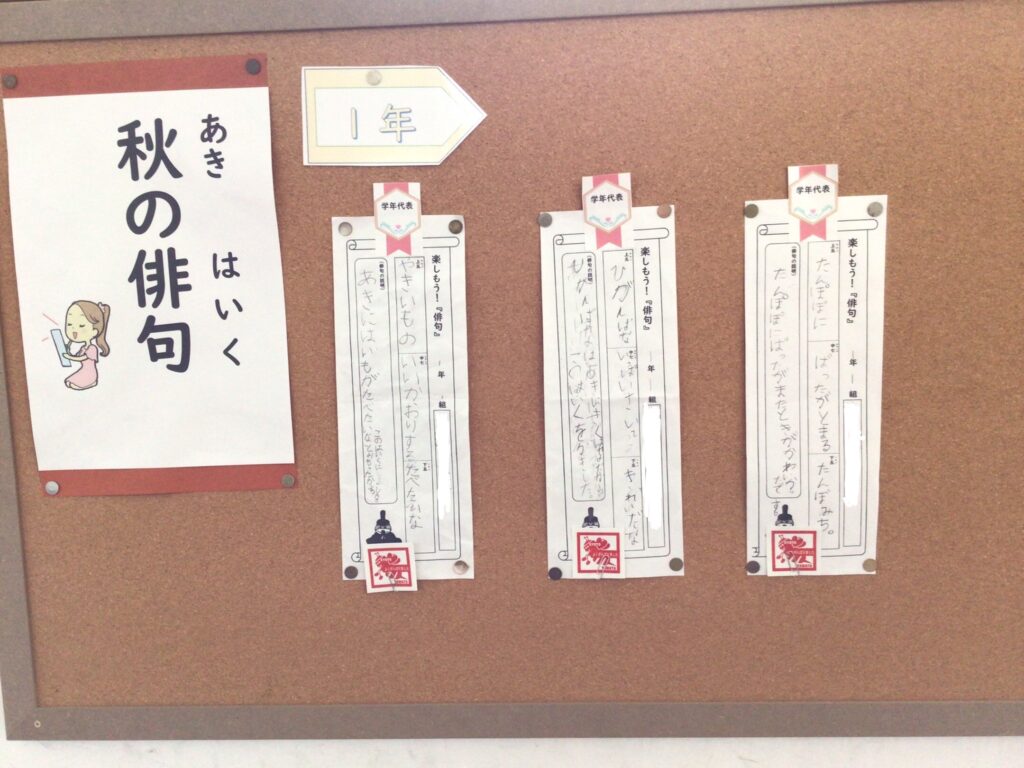 秋の俳句
あき はいく
1年
学年代表
楽しもう！『俳句』 年 組
上五 たんぽぽに 中七 ばったがとまる 下五 たんぽみち。
(俳句の説明)
たんぽぽにばったがまたときがかわ
学年代表
楽しもう！『俳句』 年 組
上五 ひがんばな 中七 いっぱいさいて 下五 きれいだな
(俳句の説明)
ひがんばなはあきにさく
このはいくをかきました。
学年代表
楽しもう！『俳句』 年 組
上五 やきいもの 中七 いいかおりする 下五 たべたいな
(俳句の説明)
あきにはいもがたべたいな